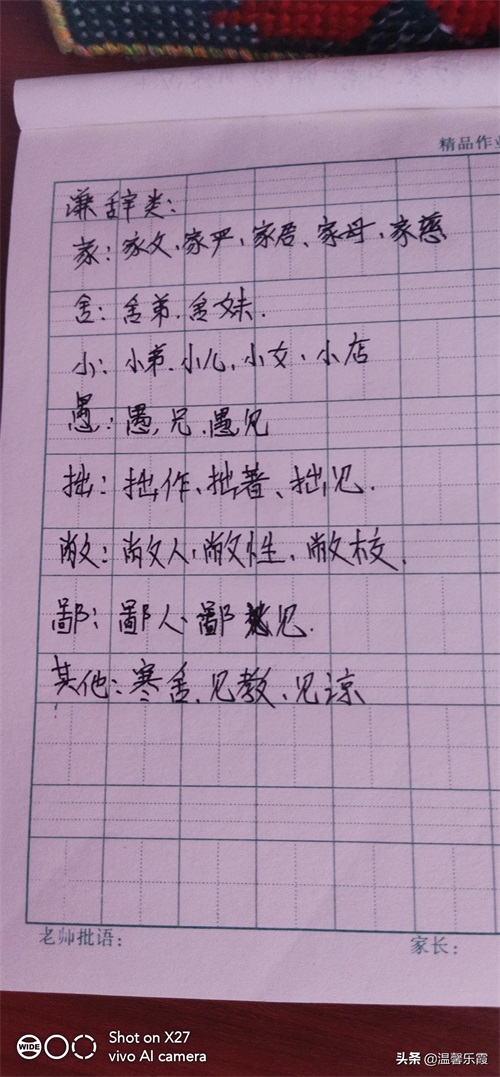 精品作业
谦辞类:
家:家父、家严,家君、家母,家慈
舍:舍弟、舍妹.
小:小弟、小儿,小女,小店
愚:愚兄、愚见
拙:拙作、拙著、拙见.
敝:敝人,敝性,敝校.
鄙:鄙人、鄙见.
其他:寒舍、见教、见谅
老师批语:
家长:
Shot on X27
WIDE
vivo AI camera
头条 @温馨乐霞